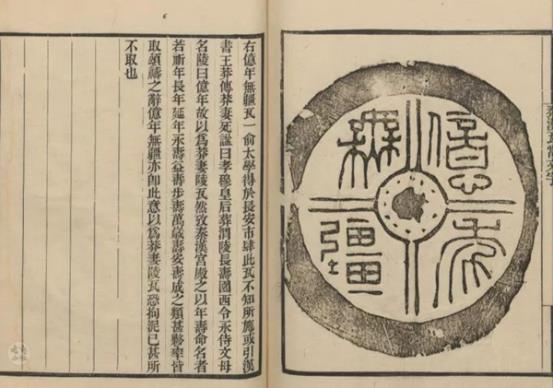 億年
無疆
右億年無疆瓦一俞太學得於長安市肆此瓦不知所施或引漢
書王莽傳莽妻死諡曰孝穆皇后葬渭陵長壽園西令永侍文母
名陵曰億年故以爲莽妻陵瓦然攷秦漢宮殿之以年壽命名者
若祈年長年延年永壽益壽步壽萬歲壽安壽成之類甚夥率皆
取頌禱之辭億年無疆亦卽此意以爲莽妻陵瓦恐拘泥已甚所
不取也